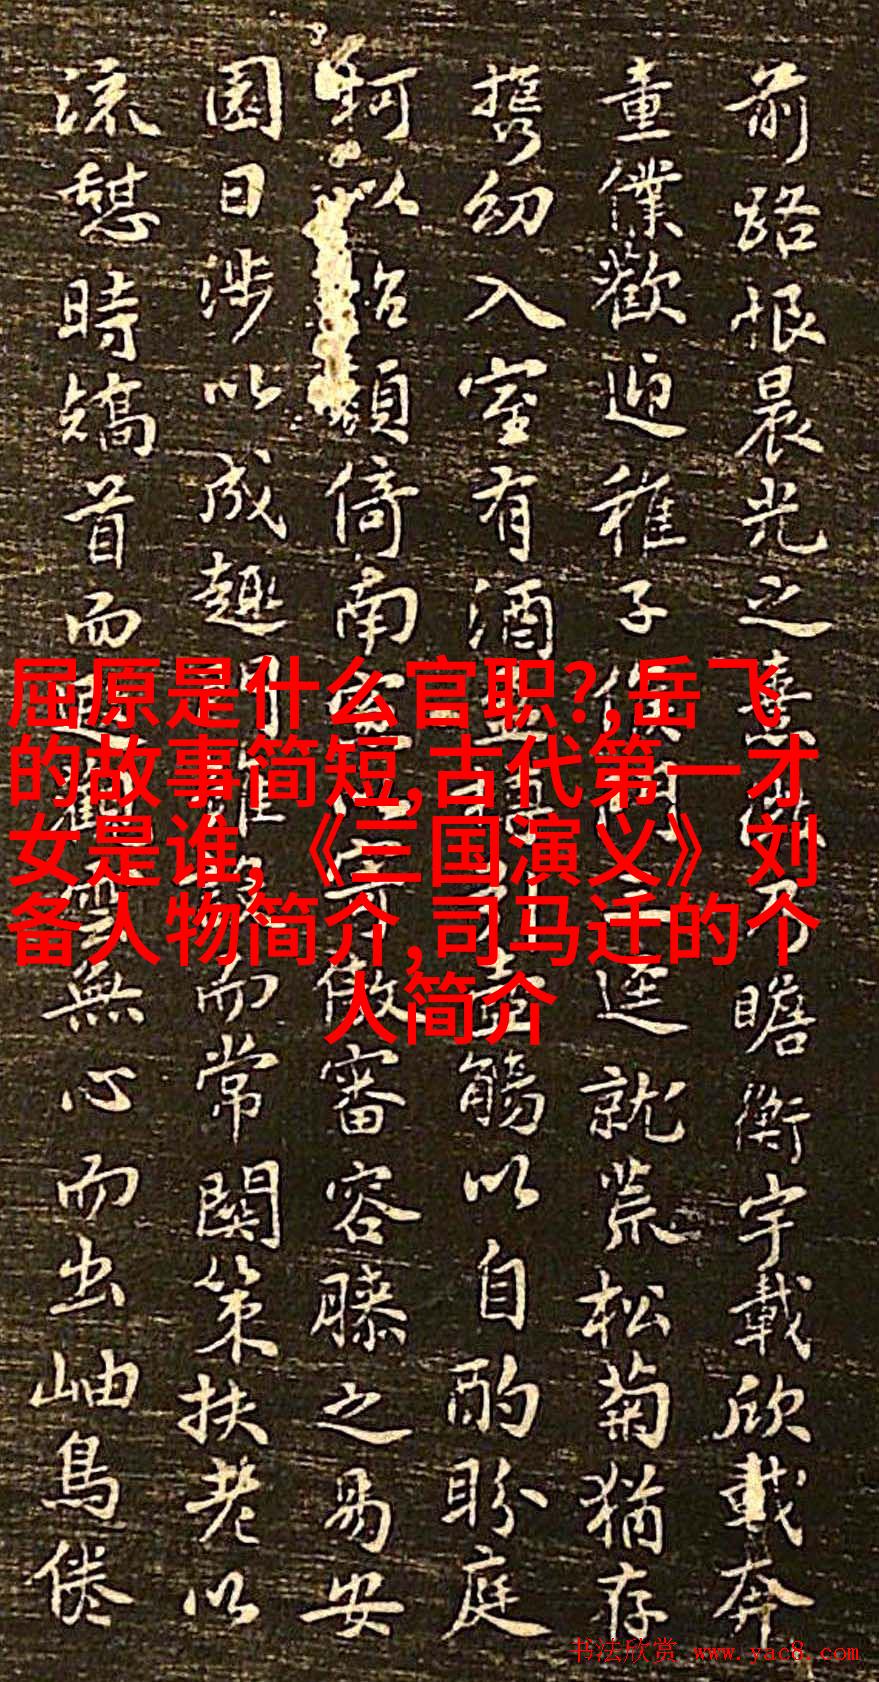 前路恨晨光之熹微乃瞻衡宇載欣載奔
童僕歡迎稚子候門三逕就荒松菊猶存
攜幼入室有酒盈樽引壺觴以自酌盼庭
柯以怡顏倚南窗以寄傲審容膝之易安
園日涉以成趣門雖設而常關策扶老以
流憩時矯首而遐觀雲無心而出岫鳥倦
屈原是什么官职?,岳飞
的故事简短,古代第一才
女是谁,《三国演义》刘
备人物简介,司马迁的个
人简介
书法欣赏 www.yac8.com